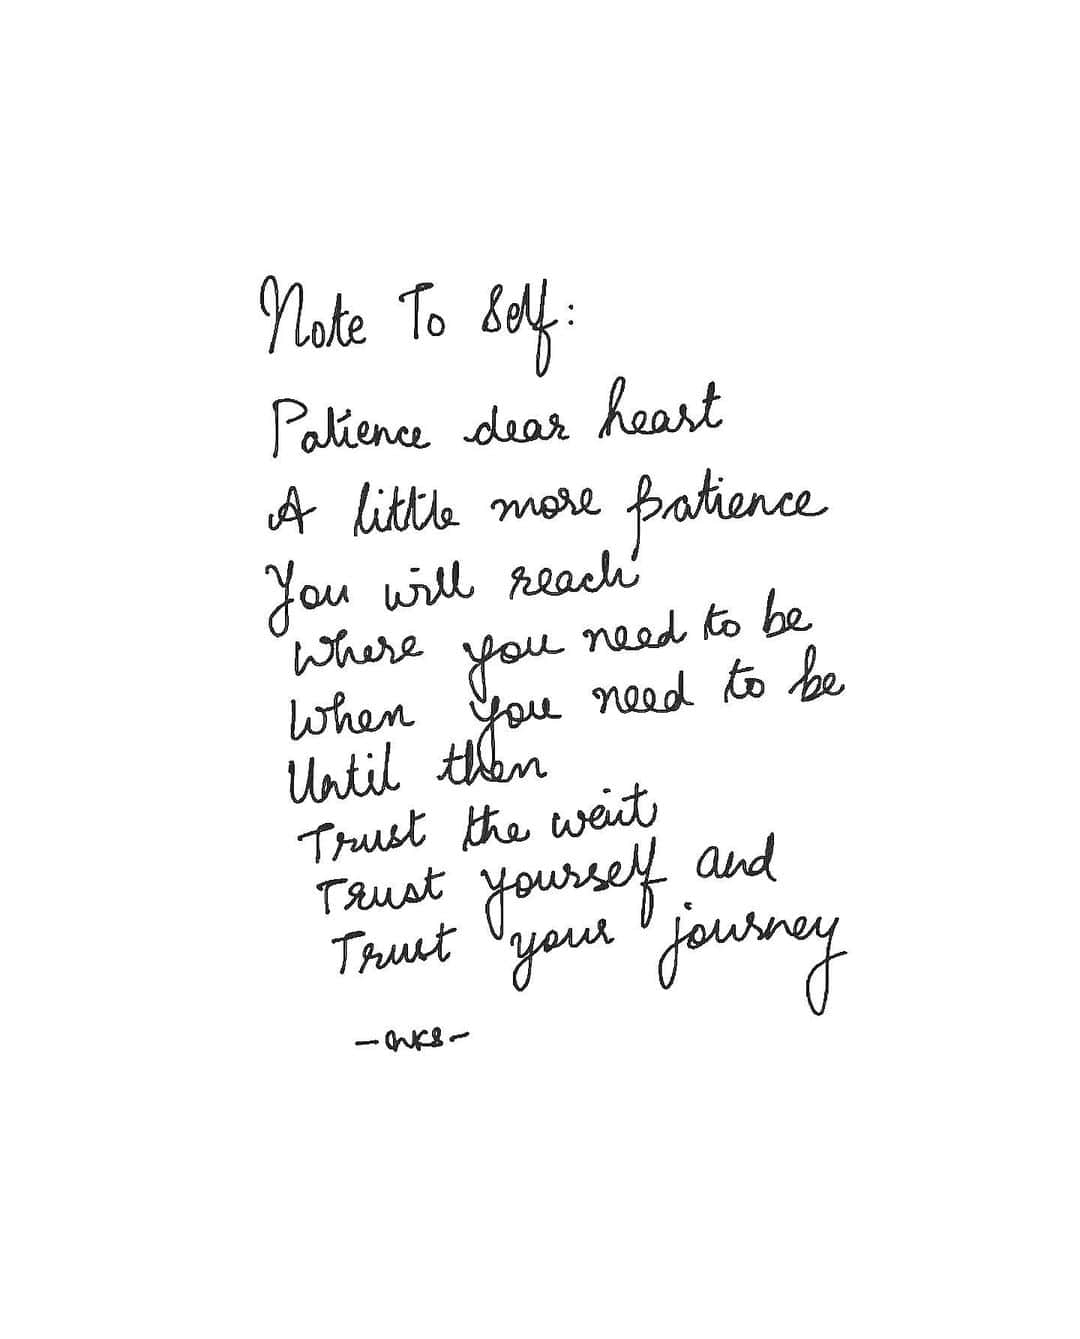 Note To Self:
Patience dear heart
A little more patience
You will reach
Where you need to be
When you need to be
Until then
Trust the wait
Trust yourself and
Trust your journey